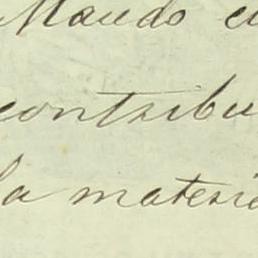 Mando e
contribu
la materi